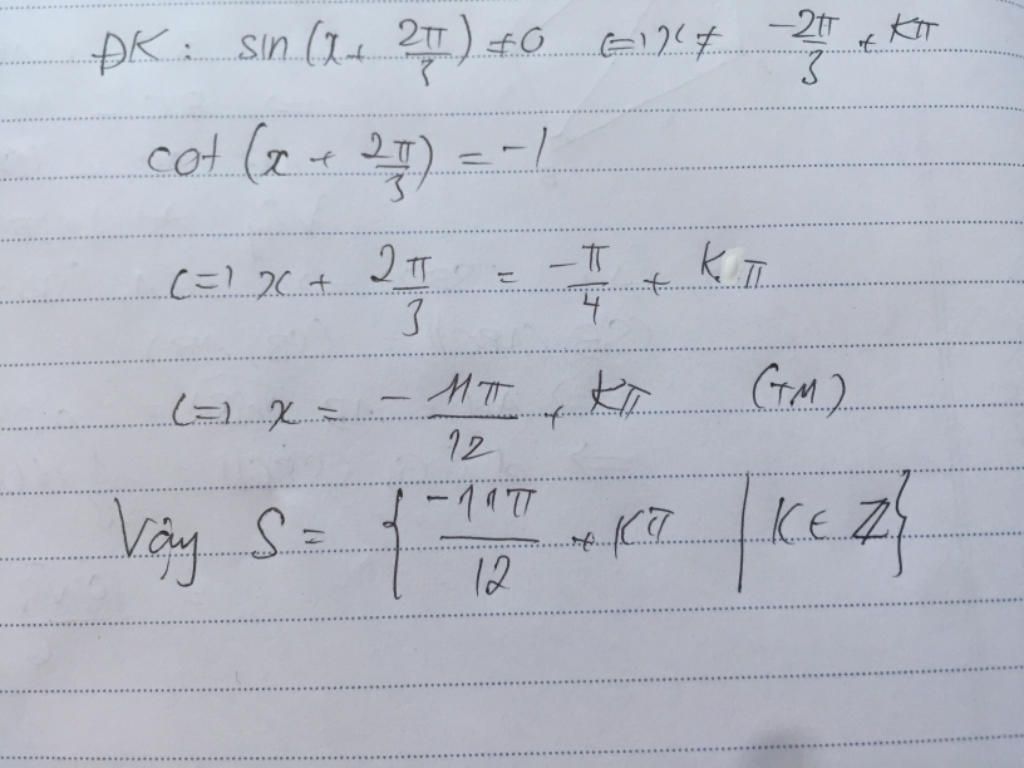 ĐK: sin (x + 2π/3) ≠ 0 <=> x ≠ -2π/3 + kπ
cot (x + 2π/3) = -1
<=> x + 2π/3 = -π/4 + kπ
<=> x = - 11π/12 + kπ (TM)
Vậy S = { -11π/12 + kπ | k ∈ Z }